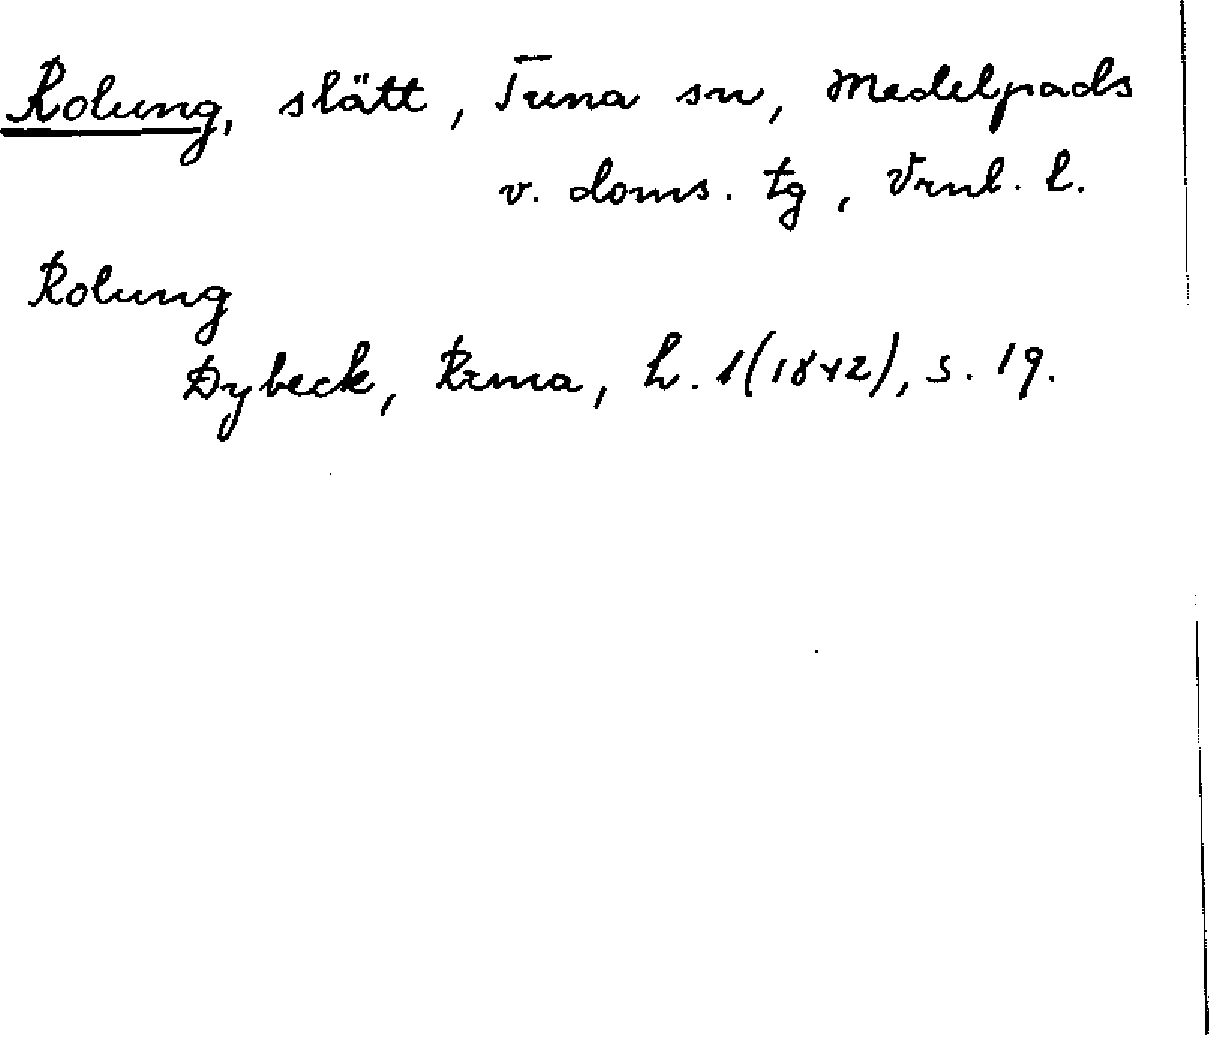 Rolung, slätt, Tuna sn, Medelpads
v. doms. tg, Vrnl. l.
Rolung
Dybeck, Runa, h. 1 (1842), s. 19.